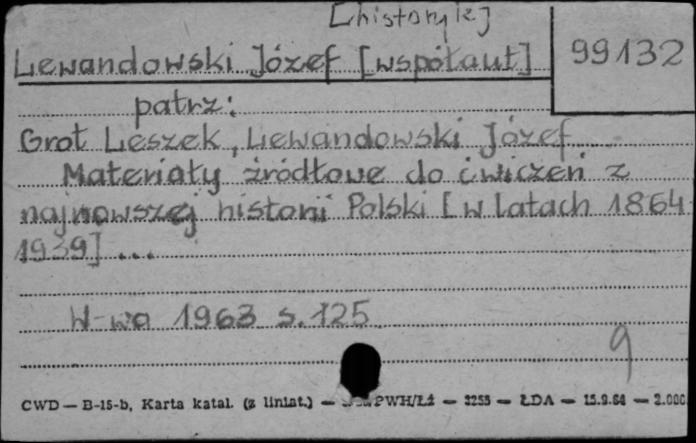 [historyk]
Lewandowski Józef [współaut] 99132
patrz:
Grot Leszek, Lewandowski Józef
Materiały źródłowe do ćwiczeń z
najnowszej historii Polski [w latach 1864-
1939] ...
W-wa 1963 s. 125
9
CWD — B-15-b, Karta katal. (z liniat.) — PWH/Łż — 3255 — ŁDA — 15.9.64 — 2.000